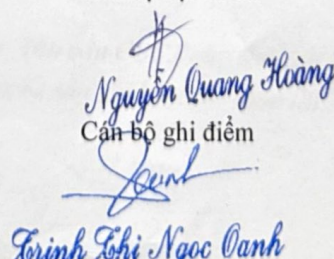 Nguyễn Quang Hoàng
Cán bộ ghi điểm
Trịnh Thị Ngọc Oanh